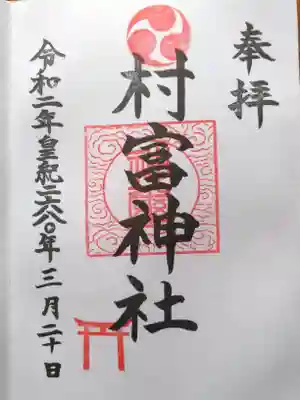 奉拝
村富神社
令和二年皇紀二六八〇年三月二十日